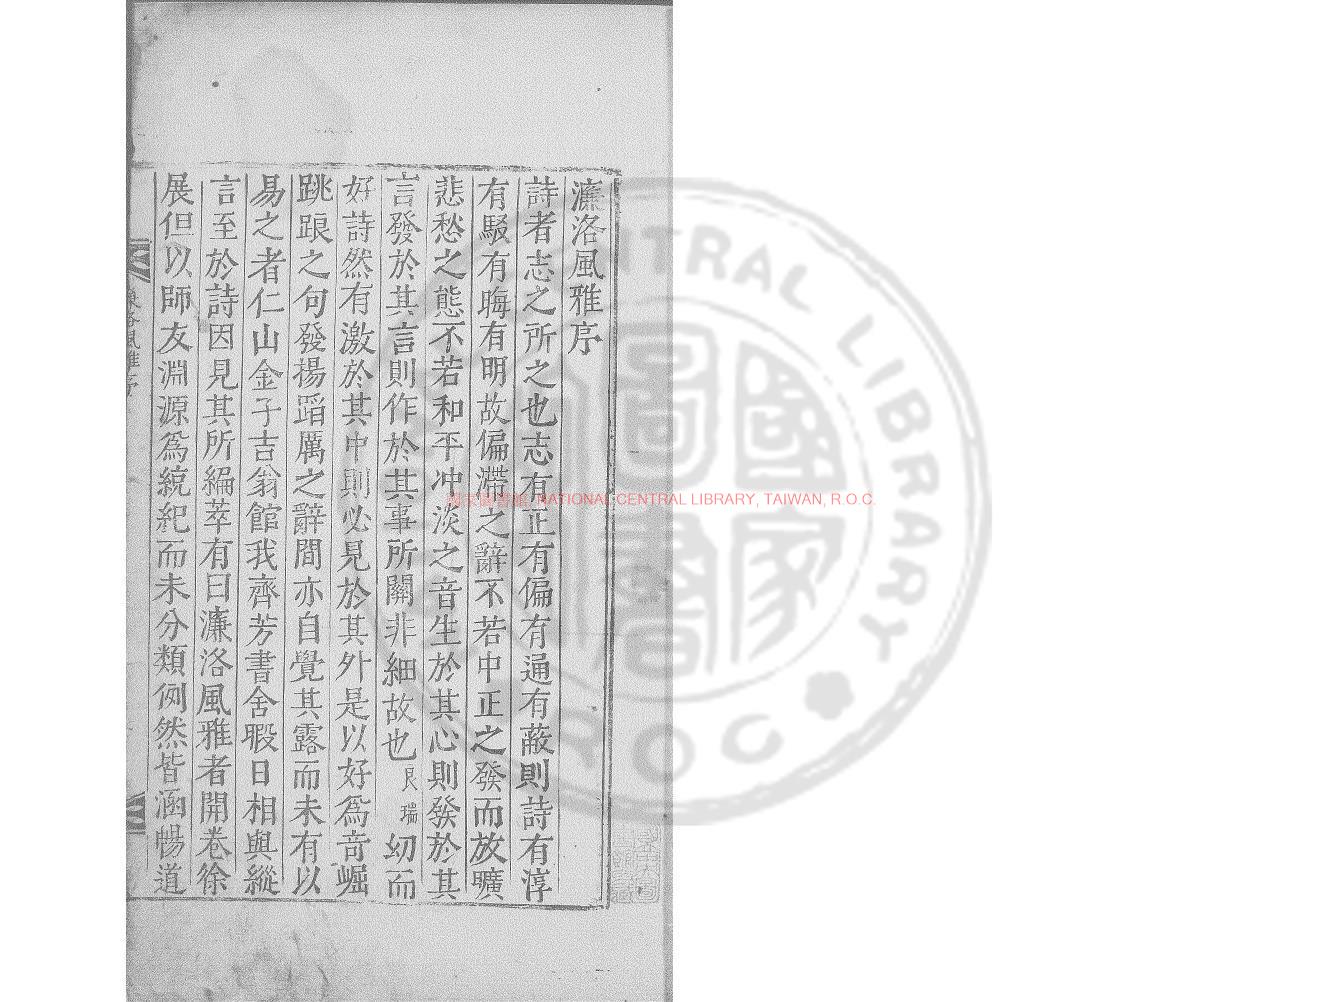 濂洛風雅序
詩者志之所之也志有正有偏有通有蔽則詩有淳
有駁有晦有明故偏滯之辭不若中正之發而放曠
悲愁之態不若和平冲淡之音生於其心則發於其
言發於其言則作於其事所關非細故也良瑞幼而
好詩然有激於其中則必見於其外是以好爲奇崛
跳踉之句發揚蹈厲之辭間亦自覺其露而未有以
易之者仁山金子吉翁館我齊芳書舍暇日相與縱
言至於詩因見其所編萃有曰濂洛風雅者開卷徐
展但以師友淵源爲統紀而未分類例然皆涵暢道
NATIONAL CENTRAL LIBRARY, TAIWAN, R.O.C.